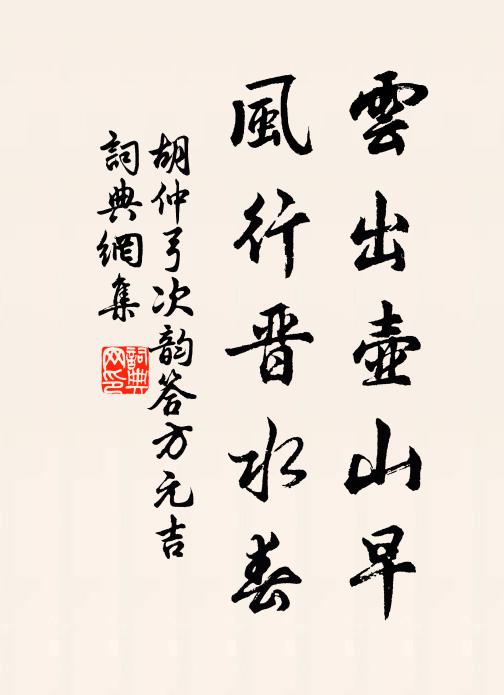 雲出壺山早
風行晋水春
胡仲弓次韵答方元吉
詞典網集
詞典網印